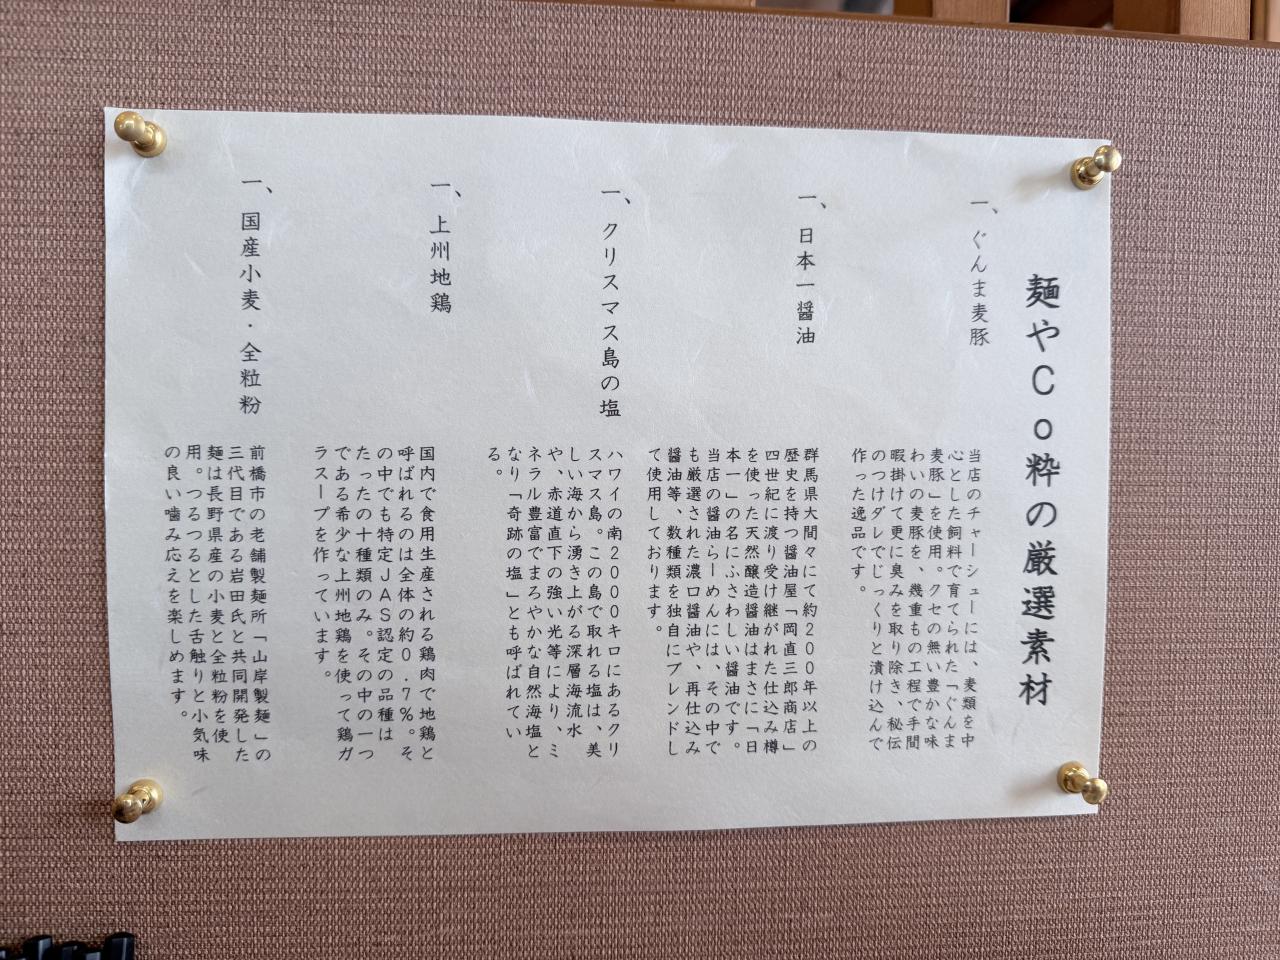 麺やCo粋の厳選素材
一、ぐんま麦豚
当店のチャーシューには、麦類を中
心とした飼料で育てられた「ぐんま
麦豚」を使用。クセの無い豊かな味
わいの麦豚を、幾重もの工程で手間
暇掛けて更に臭みを取り除き、秘伝
のつけダレでじっくりと漬け込んで
作った逸品です。
一、日本一醤油
群馬県大間々にて約200年以上の
歴史を持つ醤油屋「岡直三郎商店」
四世紀に渡り受け継がれた仕込み樽
を使った天然醸造醤油はまさに「日
本一」の名にふさわしい醤油です。
当店の醤油らーめんには、その中で
も厳選された濃口醤油や、再仕込み
醤油等、数種類を独自にブレンドし
て使用しております。
一、クリスマス島の塩
ハワイの南2000キロにあるクリ
スマス島。この島で取れる塩は、美
しい海から湧き上がる深層海流水
や、赤道直下の強い光等により、ミ
ネラル豊富でまろやかな自然海塩と
なり「奇跡の塩」とも呼ばれてい
る。
一、上州地鶏
国内で食用生産される鶏肉で地鶏と
呼ばれるのは全体の約0.7%。そ
の中でも特定JAS認定の品種は
たったの十種類のみ。その中の一つ
である希少な上州地鶏を使って鶏ガ
ラスープを作っています。
一、国産小麦・全粒粉
前橋市の老舗製麺所「山岸製麺」の
三代目である岩田氏と共同開発した
麺は長野県産の小麦と全粒粉を使
用。つるつるとした舌触りと小気味
の良い噛み応えを楽しめます。